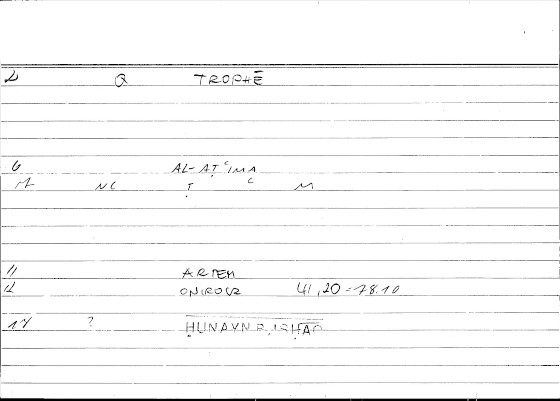 2 Q TROPHĒ
6 AL-AṬʿIMA
12 NC Ṭ C M
11 ARTEM
12 ONIROCR 41,20-78.10
14 ? ḤUNAYN B. ISḤĀQ